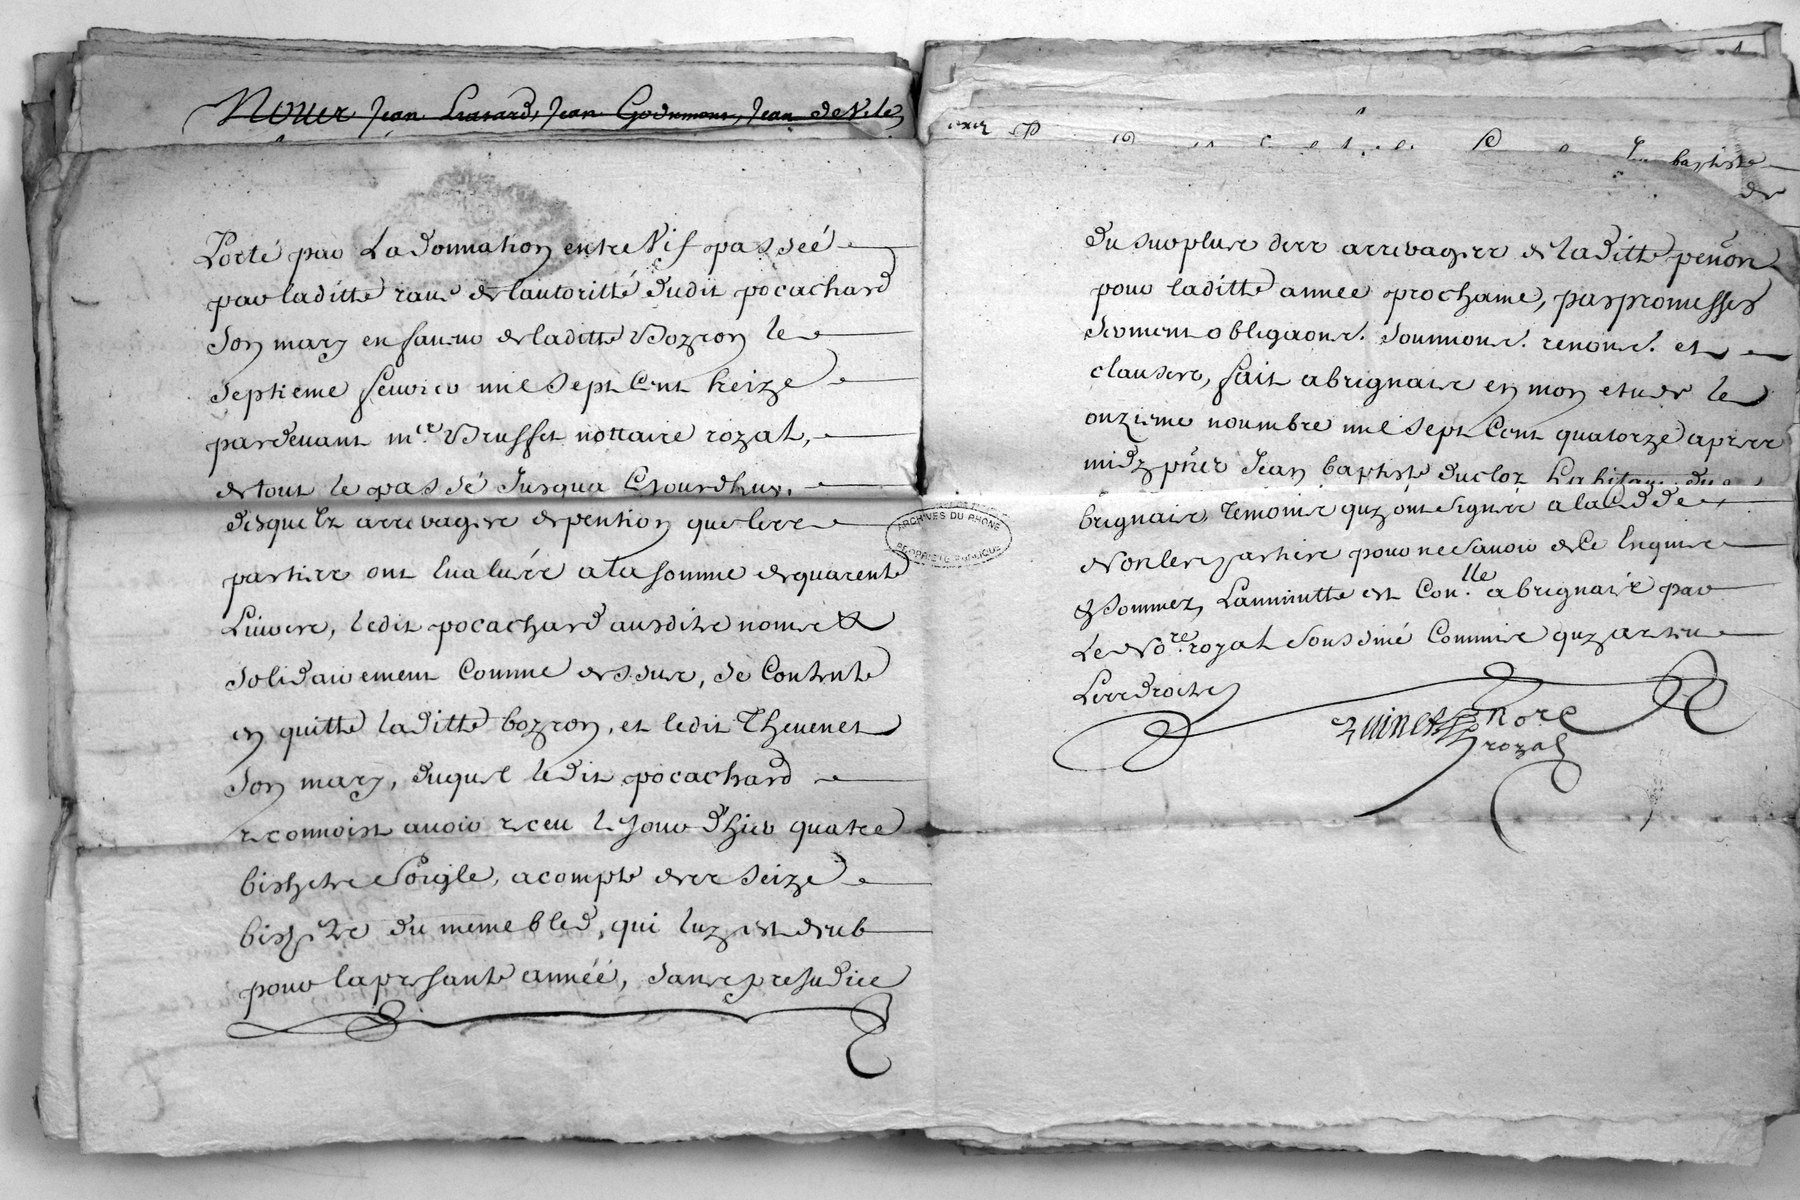 Nouer Jean Liatard, Jean Godemont, Jean de Vile
Porté par La donnation entre Vif passéé
par laditte raue de lautoritté dudit pocachard
Son mary en faueur de laditte Bozron le
Septieme feurier mil Sept Cent treize
pardeuant mre. Brusset nottaire royal,
de tout le passé Jusqua Ejourdhuy,
desquelz arreragere de pention que lere
partiere ont Eualuéé a la somme de quarente
Liuvre, ledit pocachard ausdite nome &
Solidairement Comme dessure, Se Contente
en quitte laditte bozron, et ledit Theuenet
Son mary, duquel ledit pocachard
reconnoist auoir receu le Jour dhier quatre
bichetre Soigle, acompte dere Seize
bichetre du meme bled, qui luy est deub
pour la presante annéé, Sanre prejudice
baptiste
de
du surplure dere arreragere de laditte pention
pour laditte année prochaine, par promesser
Serment obligaone. Soumione. renone. et
clausere, fait a brignaire en mon etude le
onzieme nouembre mil Sept Cent quatorze apree
midy pnter Jean baptiste ducloz habitant du
brignaire temoine quy ont Signéé a la Cedde,
et non lere partiere pour ne Sauoir de Ce Enquire
& Sommez, Laminutte est Conlle. a brignaire par
Le Ndre. royal Soussiné Commire quy a receu
Lere droitre
Quinet nore
royal
ARCHIVES DU RHONE
PROPRIETE PUBLIQUE